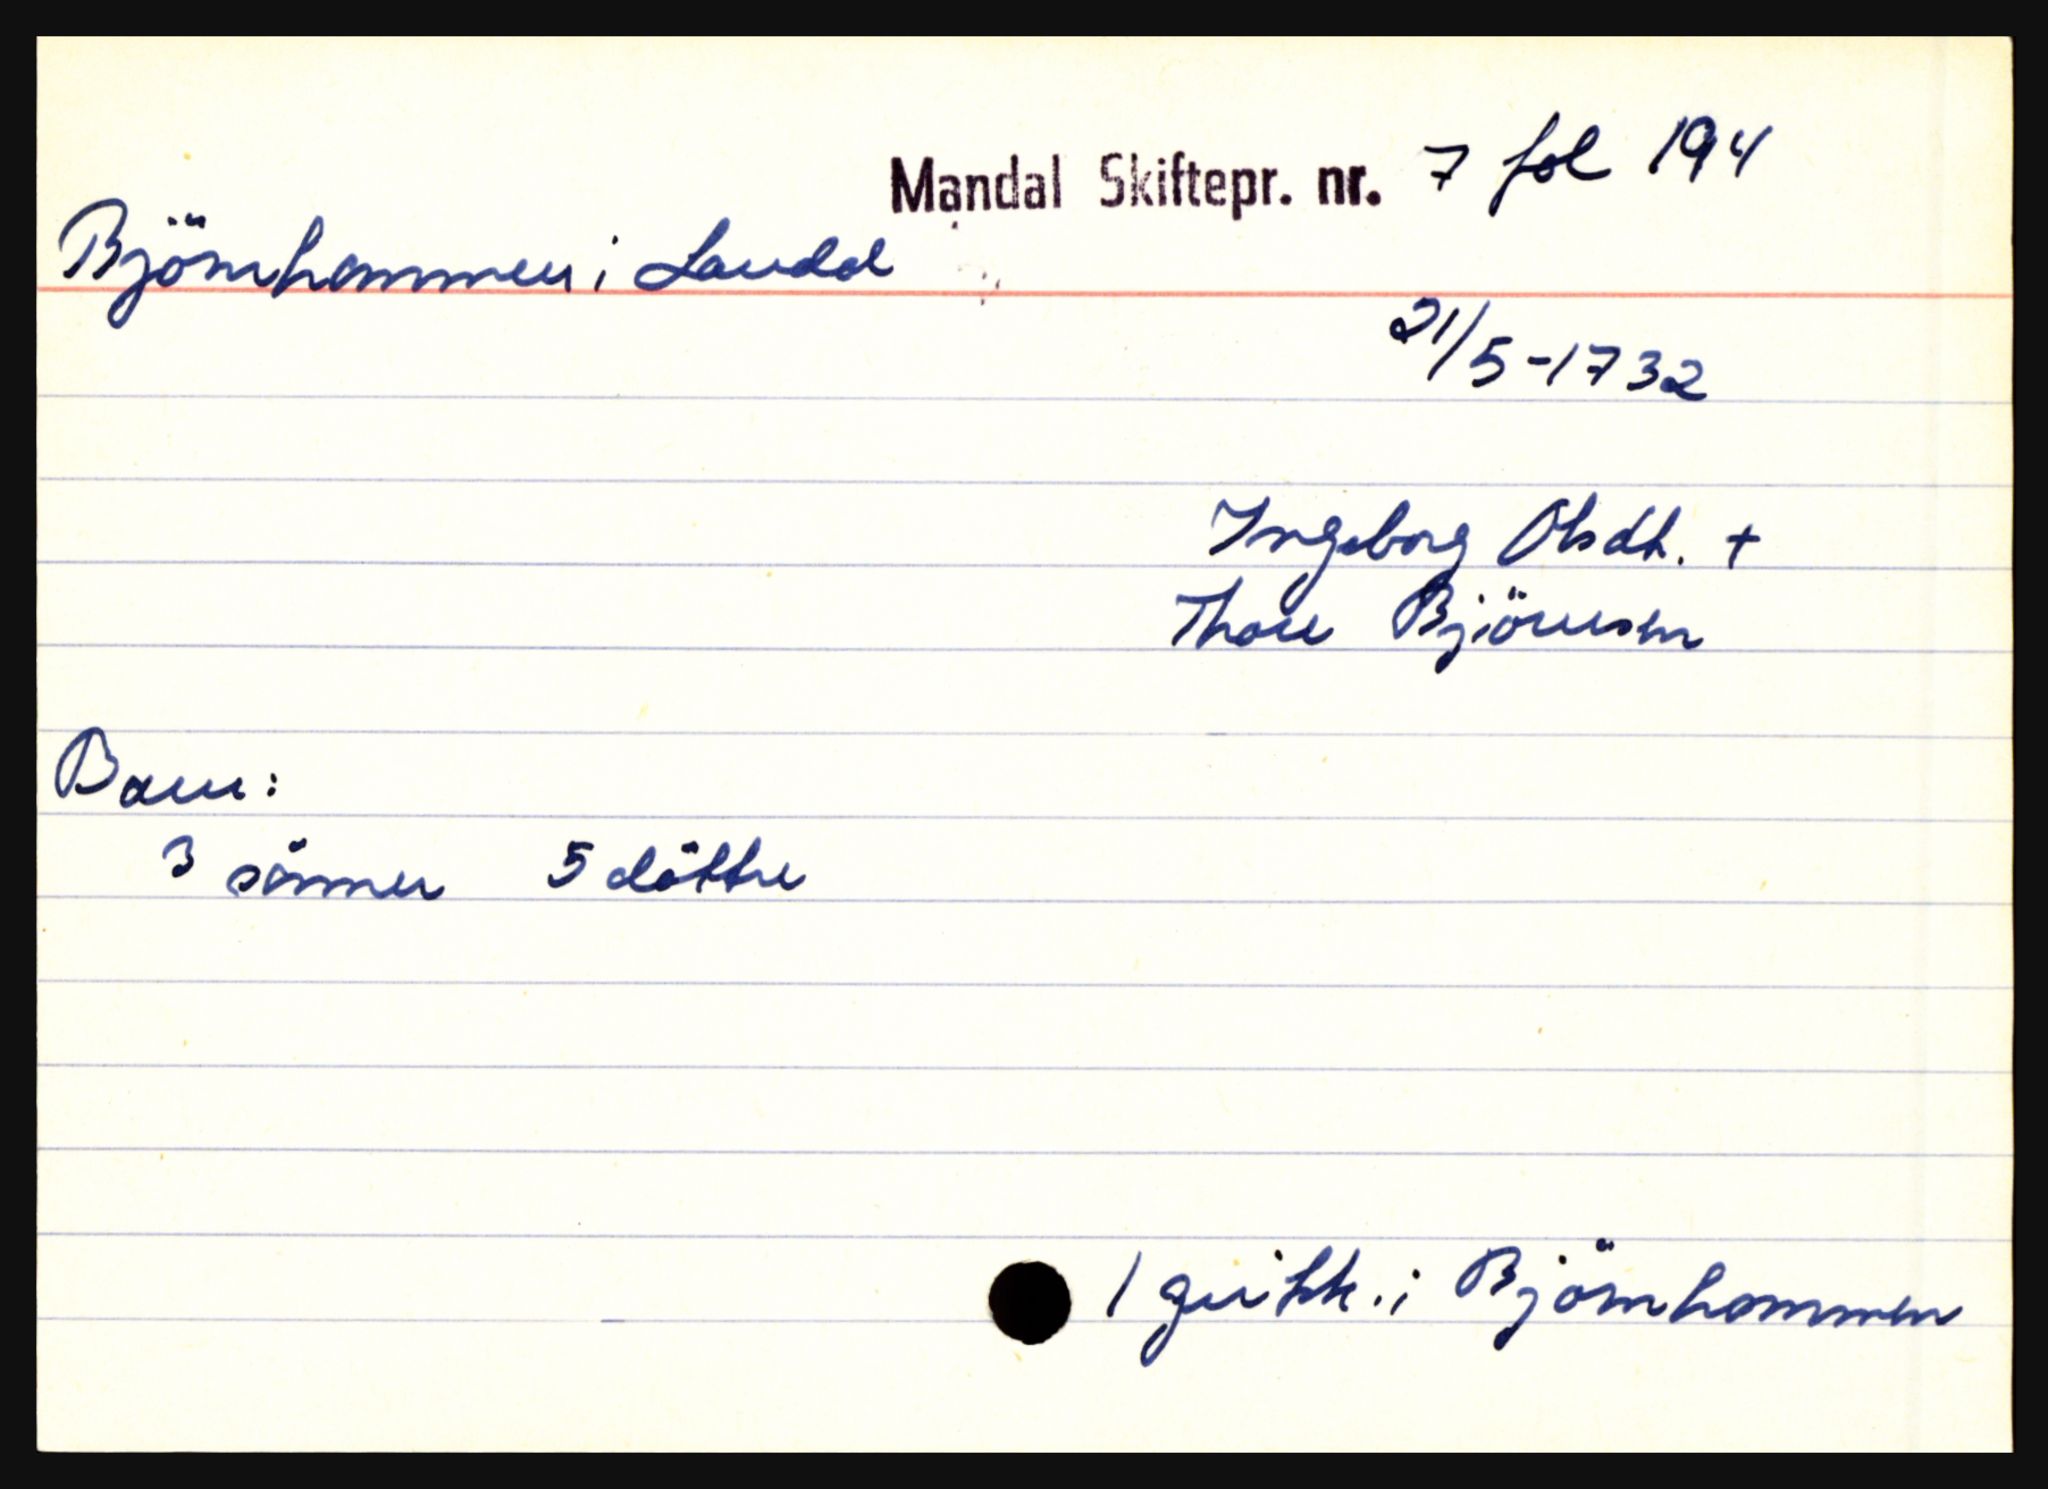 Mandal Skiftepr. nr. 7 fol 194
Björnhammen i Laudal
21/5-1732
Ingeborg Olsdt. +
Thore Bjiörnsen
Barn:
3 sönner 5 döttre
1 gu i Björnhammen